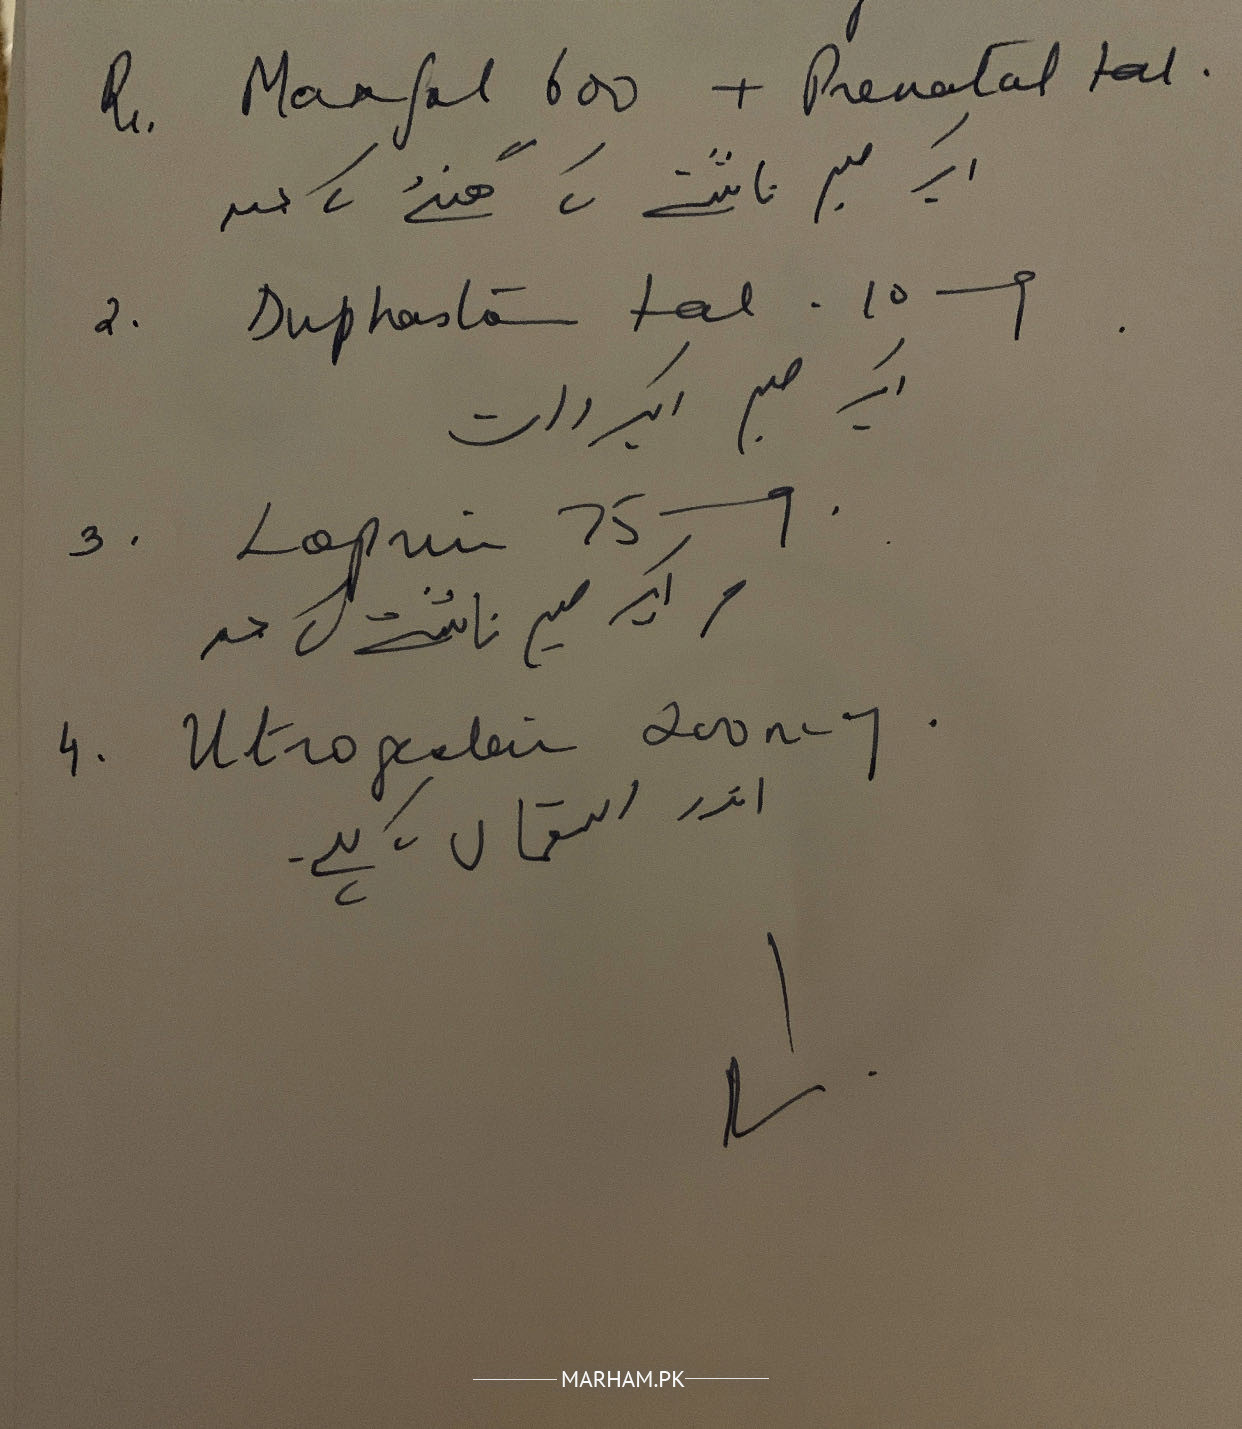 Rx. Maxfol 600 + Prenatal tab.
ایک صبح ناشتے کے گھنٹے کے بعد
2. Duphaston tab. 10 mg
ایک صبح ایک رات
3. Loprin 75 mg.
ایک صبح ناشتے کے بعد
4. Utrogestan 200 mg.
اندر استعمال کے لیے۔
MARHAM.PK